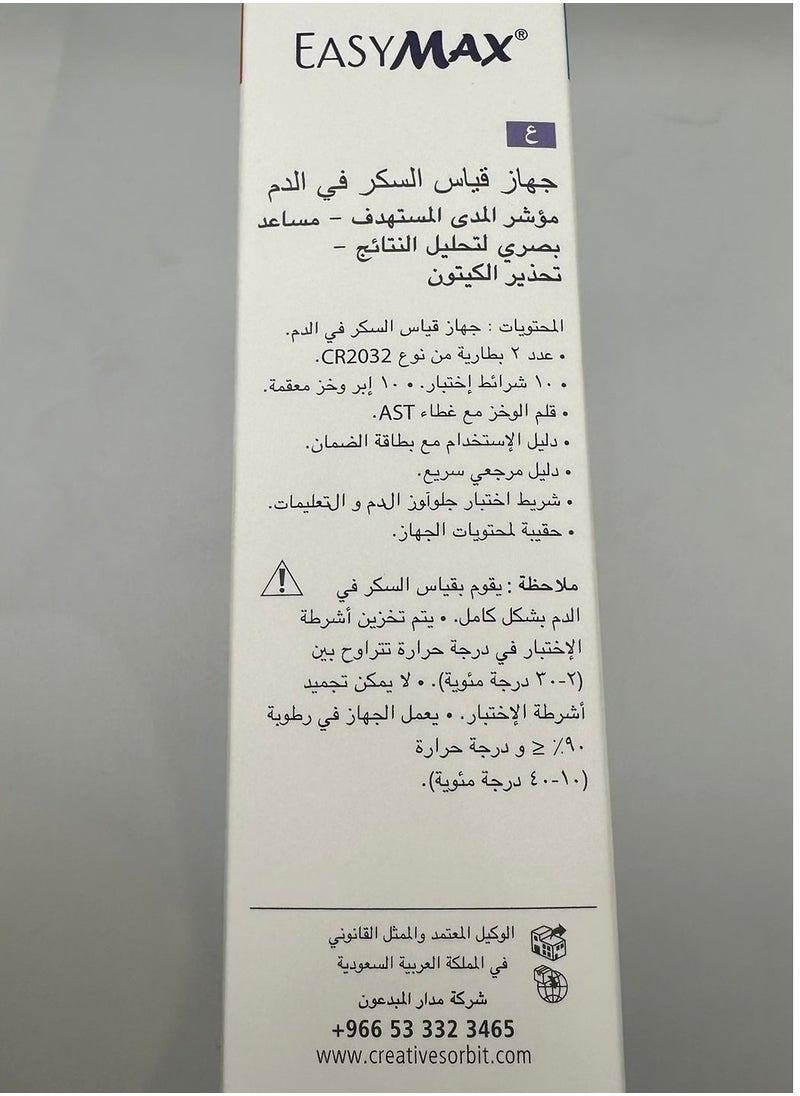 EASYMAX®
ع
جهاز قياس السكر في الدم
مؤشر المدى المستهدف – مساعد
بصري لتحليل النتائج –
تحذير الكيتون
المحتويات : جهاز قياس السكر في الدم.
• عدد ٢ بطارية من نوع CR2032.
• ١٠ شرائط إختبار. • ١٠ إبر وخز معقمة.
• قلم الوخز مع غطاء AST.
• دليل الإستخدام مع بطاقة الضمان.
• دليل مرجعي سريع.
• شريط اختبار جلوآوز الدم و التعليمات.
• حقيبة لمحتويات الجهاز.
ملاحظة : يقوم بقياس السكر في
الدم بشكل كامل. • يتم تخزين أشرطة
الإختبار في درجة حرارة تتراوح بين
(٢-٣٠ درجة مئوية). • لا يمكن تجميد
أشرطة الإختبار. • يعمل الجهاز في رطوبة
٩٠٪ ≥ و درجة حرارة
(١٠-٤٠ درجة مئوية).
الوكيل المعتمد والممثل القانوني
في المملكة العربية السعودية
شركة مدار المبدعون
+966 53 332 3465
www.creativesorbit.com